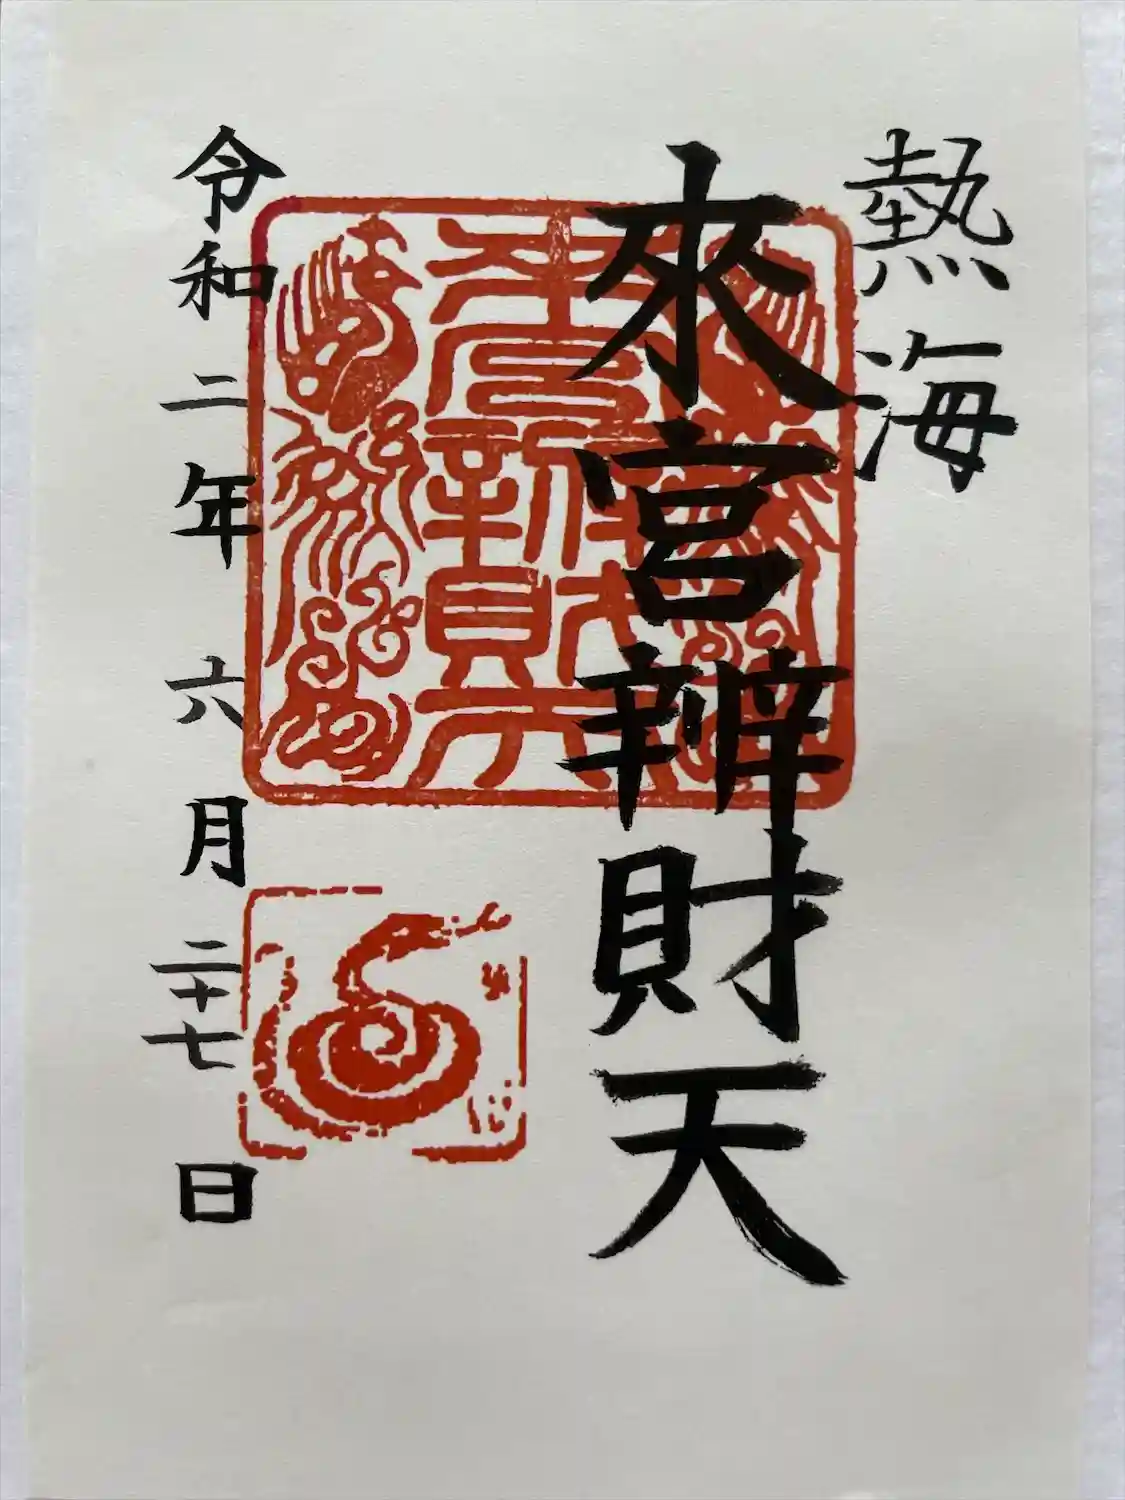 熱海
來宮辨財天
令和二年 六月二十七日